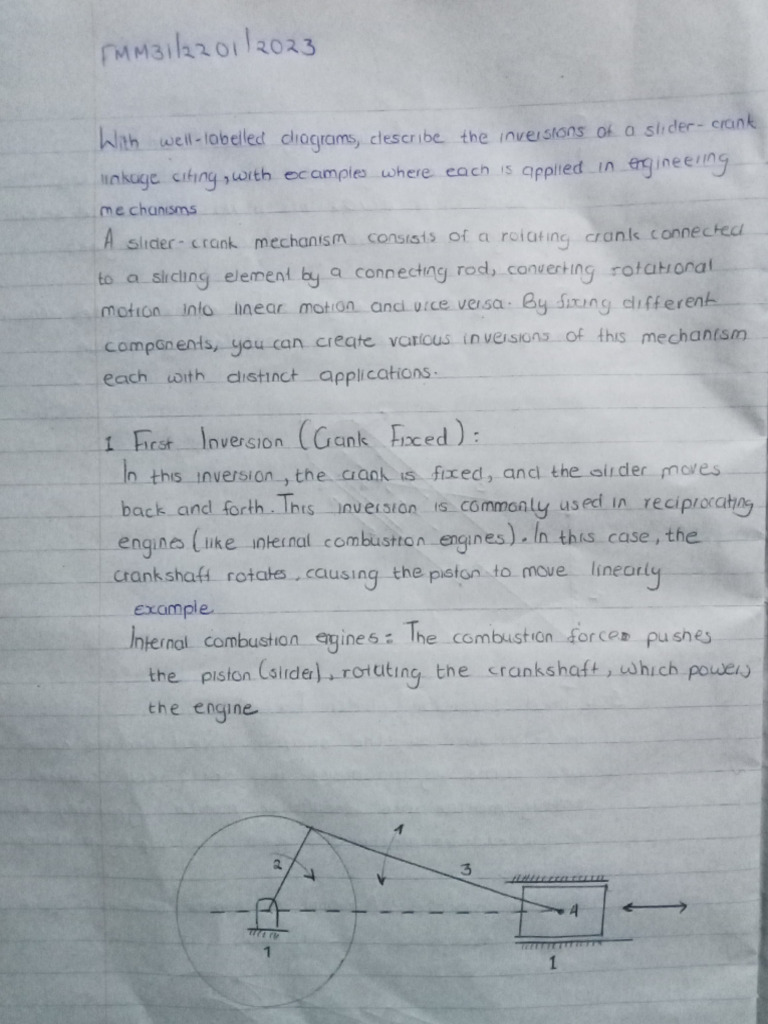 TMM31/2201/2023
With well-labelled diagrams, describe the inversions of a slider-crank
linkage citing, with examples where each is applied in engineering
mechanisms
A slider-crank mechanism consists of a rotating crank connected
to a sliding element by a connecting rod, converting rotational
motion into linear motion and vice versa. By fixing different
components, you can create various inversions of this mechanism
each with distinct applications.
1 First Inversion (Crank Fixed):
In this inversion, the crank is fixed, and the slider moves
back and forth. This inversion is commonly used in reciprocating
engines (like internal combustion engines). In this case, the
crankshaft rotates, causing the piston to move linearly
example
Internal combustion engines: The combustion forces pushes
the piston (slider), rotating the crankshaft, which powers
the engine
1
2
3
4
1
1